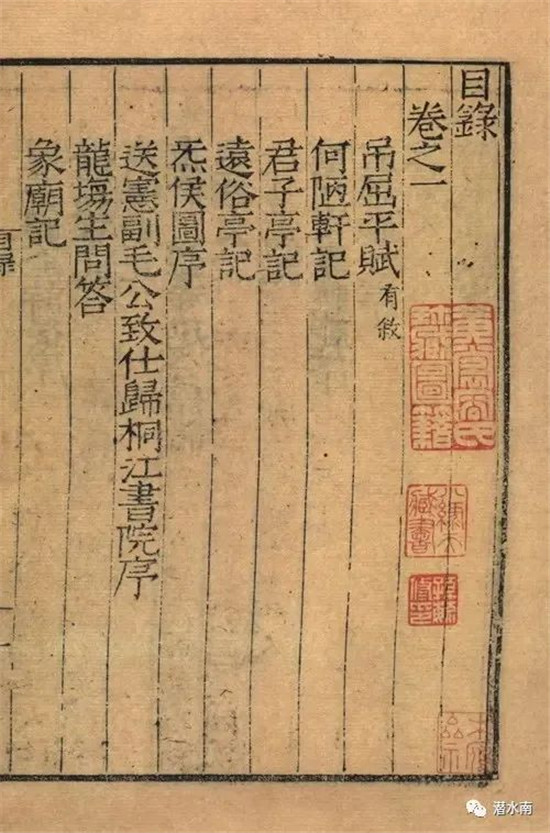 目錄
卷之一
吊屈平賦 有敘
何陋軒記
君子亭記
遠俗亭記
炁侯圖序
送憲副毛公致仕歸桐江書院序
龍塲生問答
象廟記
目錄
潜水南